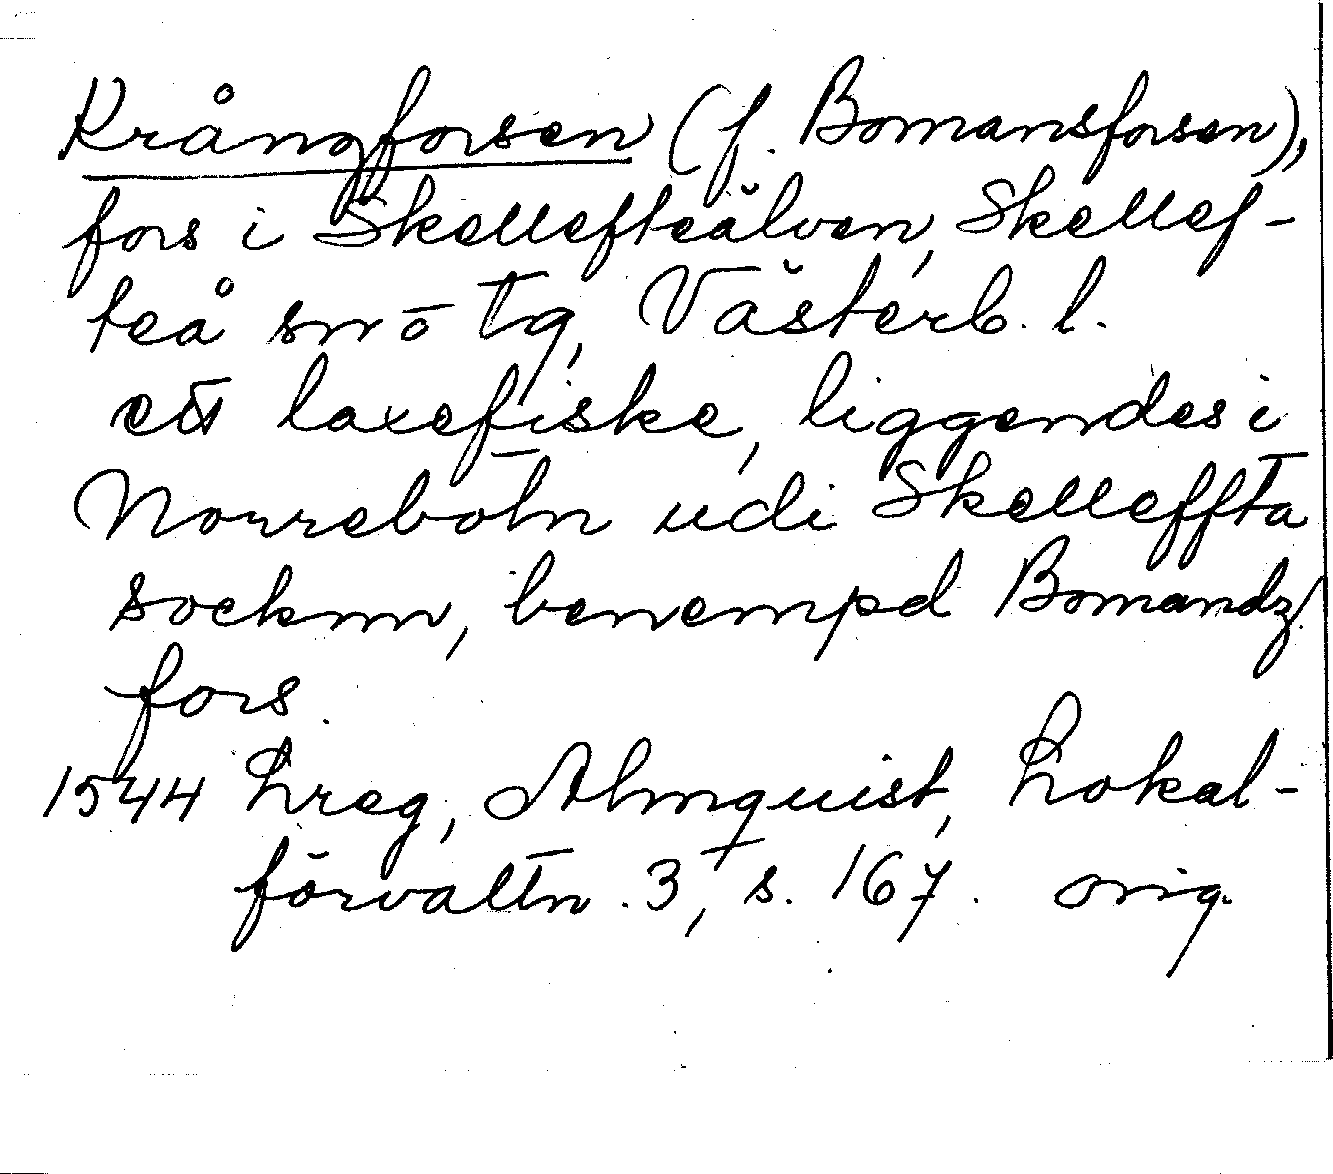 Krångforsen (f. Bomansforsen),
fors i Skellefteälven, Skellef-
teå sn o tg, Västerb. l.
ett laxefiske, liggendes i
Norrebotn udi Skelleffta
socknn, benempd Bomandz/
fors.
1544 Lreg, Almquist, Lokal-
förvaltn. 3, s. 167. orig.